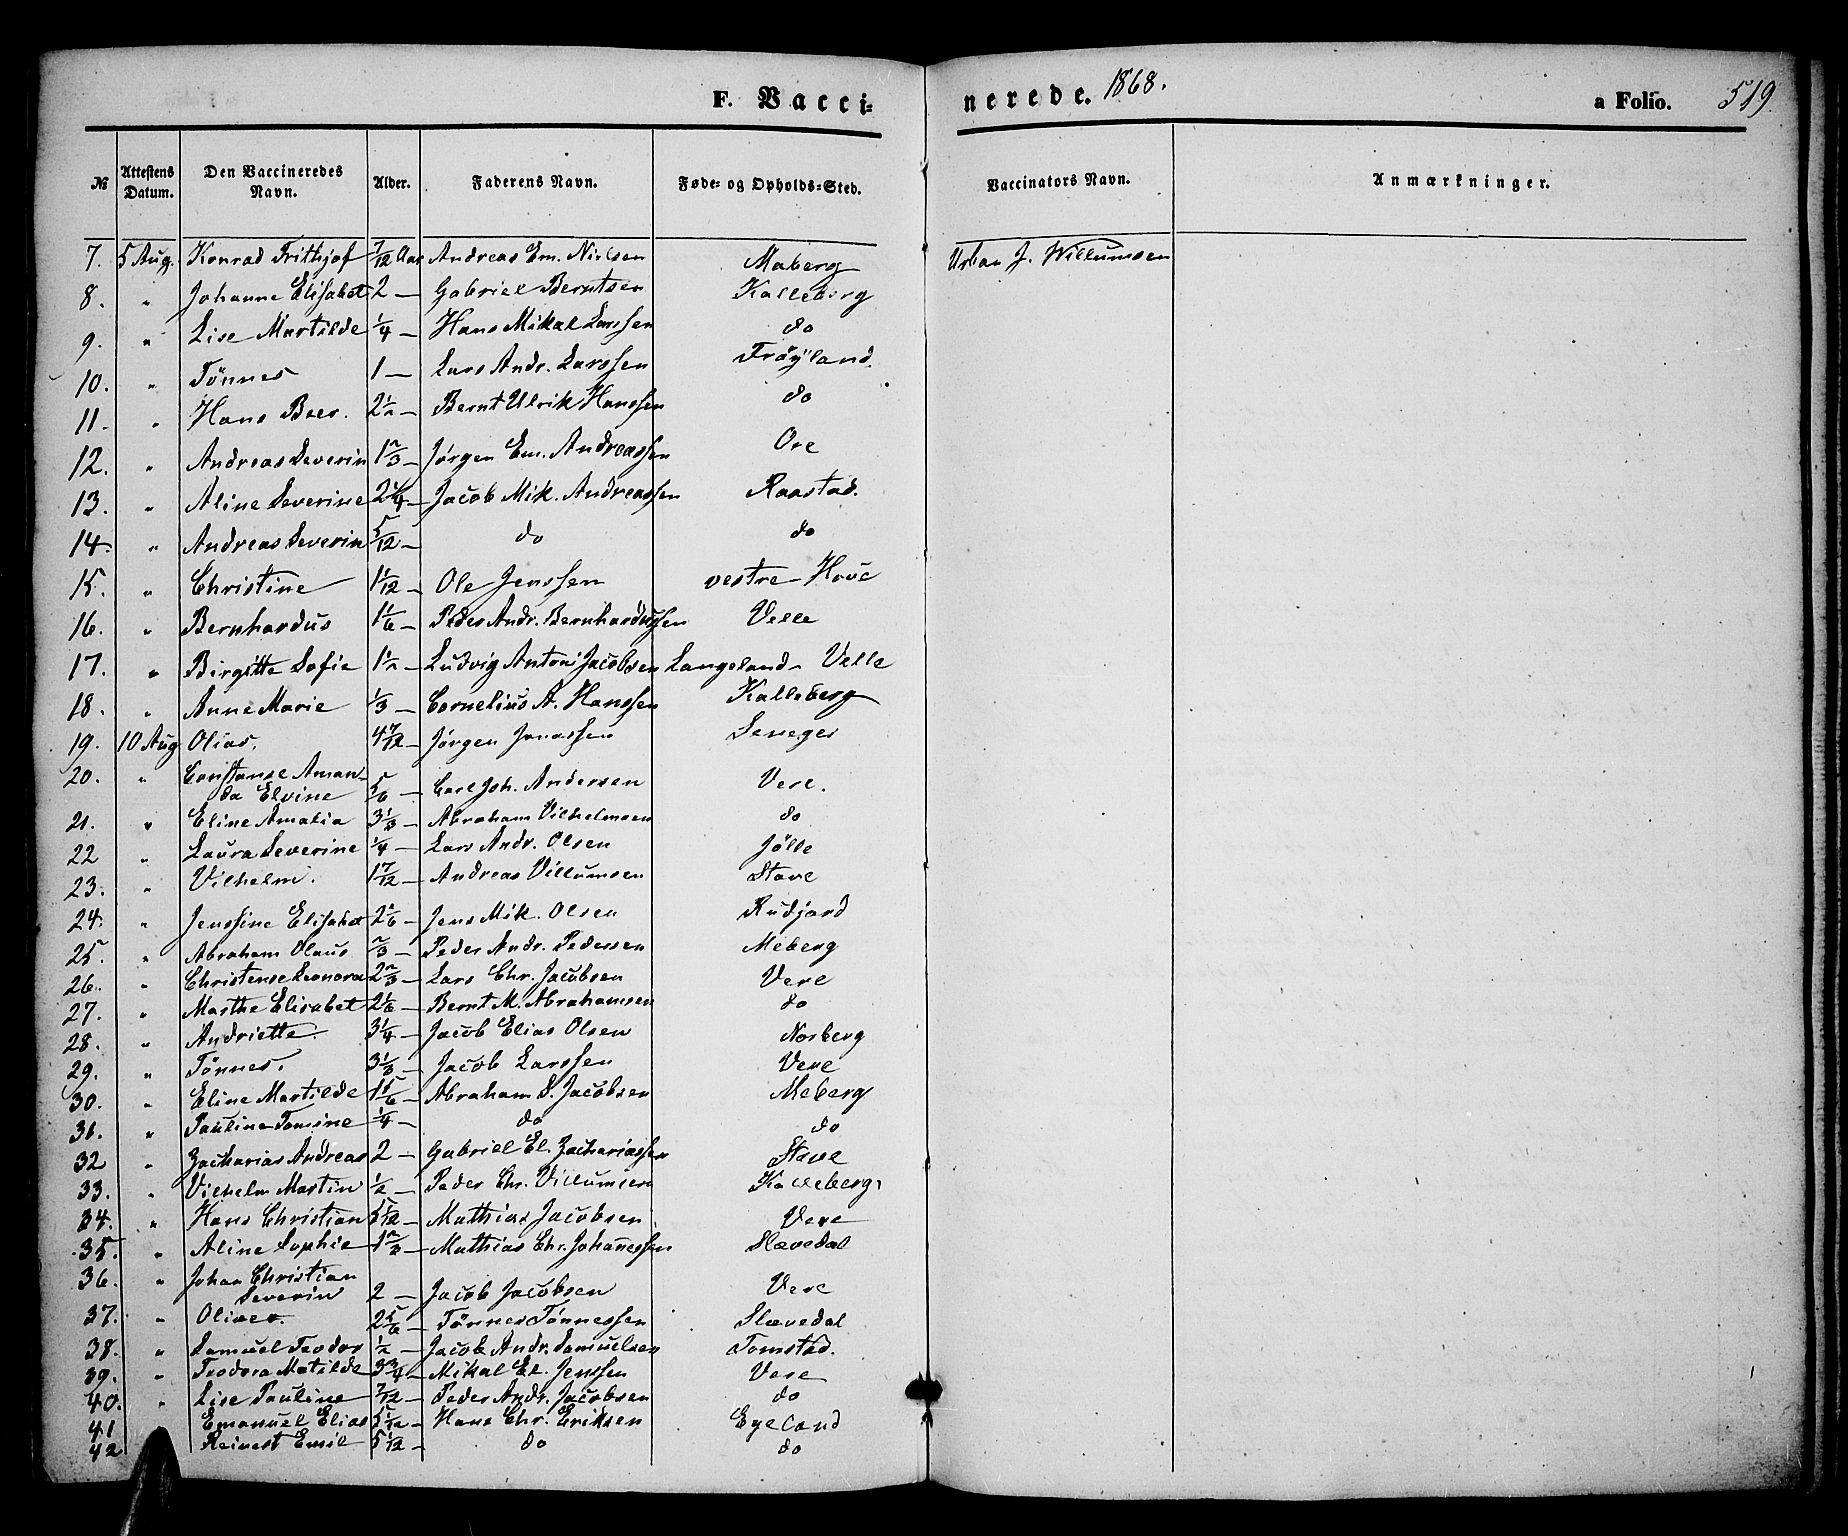 F. Vacci= nerede. 1868. a Folio. 519
№ Attestens Datum. Den Vaccineredes Navn. Alder. Faderens Navn. Føde- og Opholds-Sted. Vaccinators Navn. Anmærkninger.
7. 5 Aug. Konrad Frithjof 7/12 Aar Andreas Em. Nielsen Maberg Urban J. Willumsen
8. " Johanne Elisabet 2 — Gabriel Berntsen Kalleberg
9. " Lise Martilde 1/4 — Hans Mikal Larssen do
10. " Tönnes 1 — Lars Andr. Larssen Fröyland
11. " Hans Beer. 2 1/2 — Bernt Ulrik Hanssen do
12. " Andreas Severin 1 2/3 — Jørgen Em. Andreassen Ore
13. " Aline Severine 2 1/4 — Jacob Mik. Andreassen Raastad.
14. " Andreas Severin 5/12 — do do
15. " Christine 1 1/12 — Ole Jenssen vestre-Hove
16. " Bernhardus 1 1/6 — Peder Andr. Bernhardussen Velle
17. " Birgitte Sofie 1 1/2 — Ludvig Anton Jacobsen Langeland-Velle
18. " Anne Marie 1/3 — Cornelius A. Hanssen Kalleberg
19. 10 Aug Olias. 4 7/12 — Jørgen Jonassen
20. " Constanse Aman-
da Elvine 5/6 — Carl Joh. Andersen Vere.
21. " Eline Amalia 3 1/3 — Abraham Vilhelmsen do
22 " Laura Severine 1/4 — Lars Andr. Olsen Jölle
23. " Vilhelm. 1 7/12 — Andreas Villumsen Stave
24. " Jenssine Elisabet 2 1/6 — Jens Mik. Olsen Rudjord
25. " Abraham Olaus 2/3 — Peder Andr. Pedersen Meberg
26. " Christense Leonora 2 2/3 — Lars Chr. Jacobsen Vere
27. " Marthe Elisabet 2 1/6 — Bernt M. Abrahamsen do
28. " Andriette. 3 1/4 — Jacob Elias Olsen Norberg
29. " Tönnes. 3 1/3 — Jacob Larssen Vere
30. " Eline Martilde 1 5/6 — Abraham S. Jacobsen Meberg
31. " Pauline Tomine 1/4 — do do
32 " Zacharias Andreas 2 — Gabriel El. Zachariassen Stave
33. " Vilhelm Martin 1/2 — Peder Chr. Villumsen Kalleberg
34. " Hans Christian 5 5/12 — Mathias Jacobsen Vere
35. " Aline Sophie 1 2/3 — Mathias Chr. Johanessen Slævedal
36. " Johan Christian
Severin 2 — Jacob Jacobsen Vere
37. " Oliver. 2 5/6 — Tönnes Tönnessen Slævedal
38. " Samuel Teodor 1/2 — Jacob Andr. Samuelsen Tomstad.
39. " Teodora Matilde 3 3/4 — Mikal El. Jenssen Vere
40. " Lise Pauline 7/12 — Peder Andr. Jacobsen do
41 Emanuel Elias 5 5/12 — Hans Chr. Eriksen Egeland
42 Reinert Emil 5/12 — do do